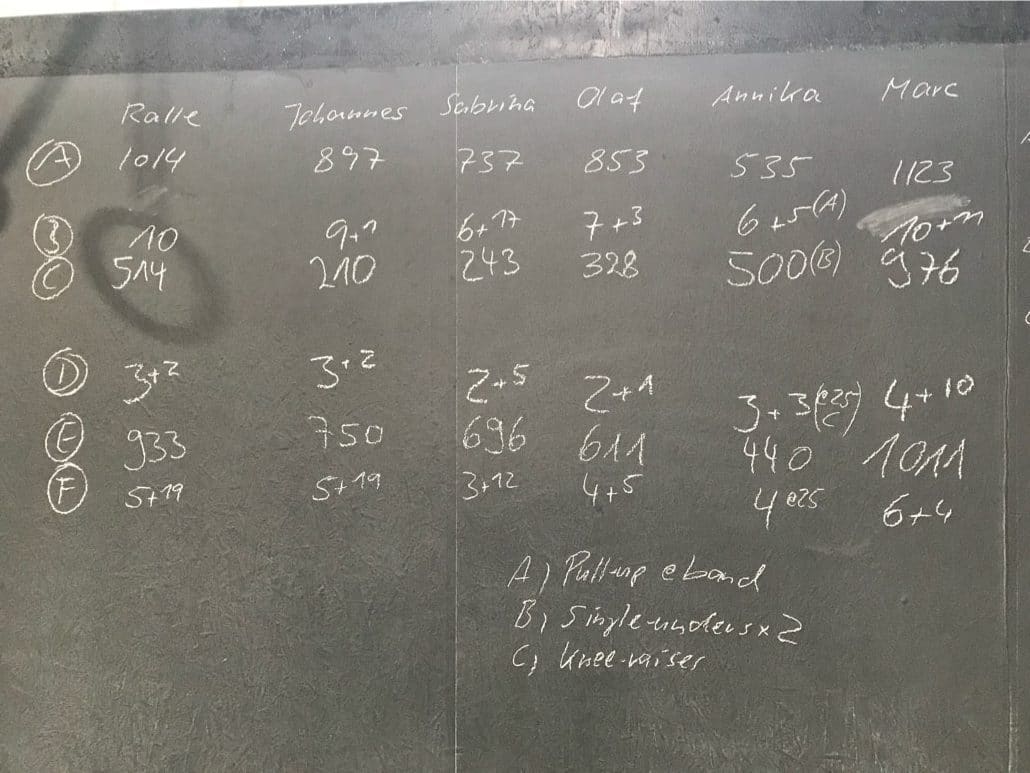 Ralle Johannes Sabrina Olaf Annika Marc
A 1014 897 737 853 535 1123
B 10 9+1 6+17 7+3 6+5(A) 10+11
C 514 210 243 328 500(B) 976
D 3+2 3+2 2+5 2+1 3+3(@25/C) 4+10
E 933 750 696 611 440 1011
F 5+19 5+19 3+12 4+5 4@25 6+4
A) Pull-up @band
B) Single-unders x 2
C) Knee-raises